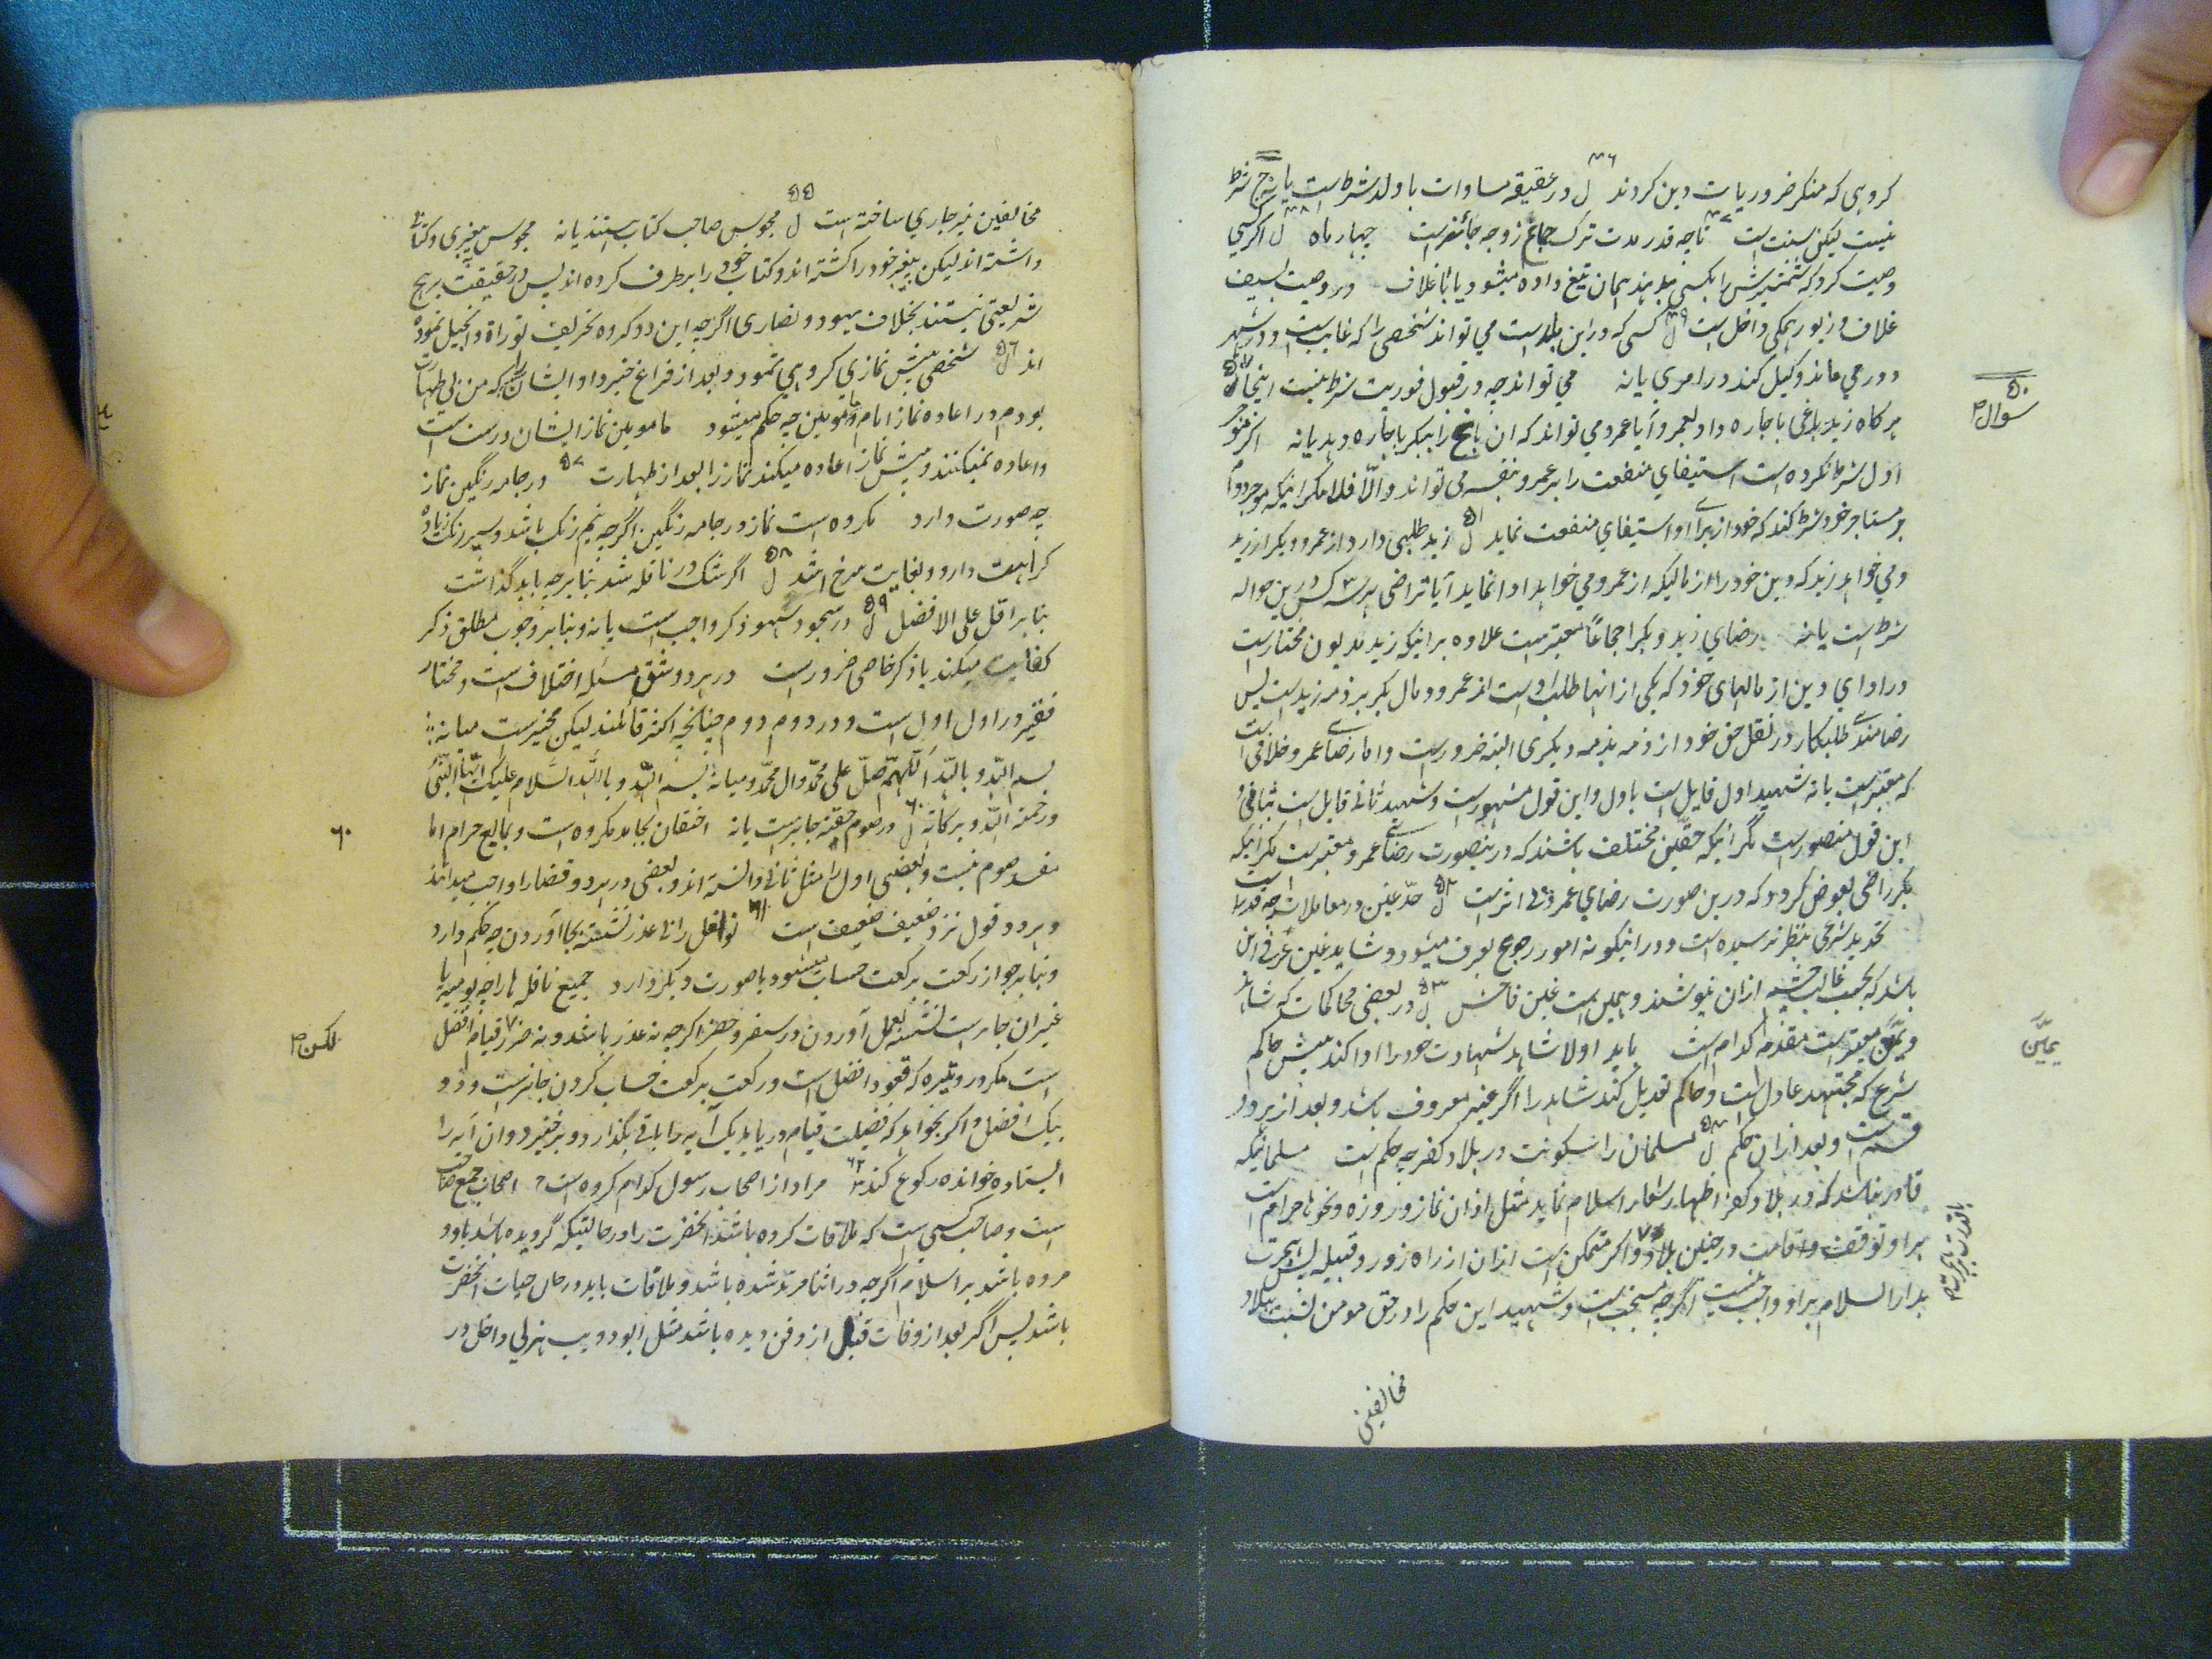 گروهی که منکر ضروریات دین گردند ل ۴۶ در عقیقه مساوات با ولد شرط است یا نه ج شرط
نیست لیکن سنت است ۴۷ تا چه قدر مدت ترک جماع زوجه جائز است چهار ماه ل ۴۸ اگر کسی
وصیت کرد که شمشیرش را بکسی بدهند همان تیغ داده میشود یا با غلاف در وصیت بسیف
غلاف و زیور همگی داخل است ل ۴۹ کسی که در این بلد است می تواند شخصی را که غایب است و در شهر
دور می ماند وکیل کند در امری یا نه می تواند چه در قبول فوریت شرط نیست اینجا
۵۰ سوال
هرگاه زید باغی باجاره داد بعمرو آیا عمرو می تواند که ان باغ را ببکر باجاره دهد یا نه اگر موجر
اول شرط نکرده است استیفای منفعت را بر عمرو بنفسه می تواند والّا فلا مگر اینکه موجر دوم
بر مستاجر خود شرط کند که خود از برای او استیفای منفعت نماید ل ۵۱ زید طلبی دارد از عمرو و بکر از زید
و می خواهد زید که دین خود را از مالیکه از عمرو می خواهد ادا نماید آیا تراضی هر سه کس در ین حواله
شرط است یا نه رضای زید و بکر اجماعاً معتبر است علاوه بر اینکه زید مدیون مختار است
در ادای دین از مالهای خود که یکی از انها طلب او است از عمرو و مال بکر بر ذمه زید است پس
رضامندی طلبکار در نقل حق خود از ذمه بذمه دیگری البته ضرور است و اما رضای عمرو خلافی است
که معتبر است یا نه شهید اول قایل است باول و این قول مشهور است و شهید ثانی قایل است بثانی و
این قول منصور است مگر اینکه حقّین مختلف باشند که در ینصورت رضای عمرو معتبر است مگر اینکه
بکر راضی بعوض گردد که در ین صورت رضای عمرو بی اثر است ل ۵۲ حدّ غبن در معاملات چه قدر است
تحدید شرعی بنظر نرسیده است و در اینگونه امور رجوع بعرف میشود و شاید غبن عرفی این
باشد که بحسب غالب چشم ازان نپوشند و همین است غبن فاحش ل ۵۳ در بعضی محاکمات که شاهد
و یمین معتبر است مقدم کدام است باید اولا شاهد شهادت خود را ادا کند پیش حاکم
یمیّن
شرع که مجتهد عادل است و حاکم تعدیل کند شاهد را اگر غیر معروف باشد و بعد از هر دو
قسم است و بعد ازان حکم ل ۵۴ مسلمان را سکونت در بلاد کفر چه حکم است مسلمانیکه
قادر نباشد که در بلاد کفر اظهار شعار اسلام نماید مثل اذان نماز و روزه و نحو ها حرام است
بر او توقف و اقامت در چنین بلاد و اگر متمکن است ازان از راه زور و قبیله پس هجرت
بدار السلام بر او واجب نیست اگرچه مستحب است و شهید این حکم را در حق مومن نسبت ببلاد
مخالفین
مخالفین نیز جاری ساخته است ل ۵۵ مجوس صاحب کتاب هستند یا نه مجوس پیغمبری و کتابی
داشته اند لیکن پیغمبر خود را کشته اند و کتاب خود را بر طرف کرده اند پس در حقیقت بر هیچ
شریعتی نیستند بخلاف یهود و نصاری اگرچه این دو گروه تحریف توراة و انجیل نموده
اند ل ۵۶ شخصی پیش نمازی گروهی نمود و بعد از فراغ خبر داد ایشان را که من بی طهارت
بودم در اعاده نماز امام و مامومین چه حکم میشود مامومین نماز ایشان درست است
و اعاده نمیکنند و پیش نماز اعاده میکند نماز را بعد از طهارت ۵۷ در جامه رنگین نماز
چه صورت دارد مکروه است نماز در جامه رنگین اگرچه نیم رنگ باشد و سیر رنگ زیاده
کراهت دارد و بغایت سرخ اشد ل ۵۸ اگر شک در نافله شد بنا بر چه باید گذاشت
بنا بر اقل علی الافضل ل ۵۹ در سجود سهو ذکر واجب است یا نه و بنا بر وجوب مطلق ذکر
کفایت میکند یا ذکر خاصی ضرور است در هر دو شق مسئله اختلاف است و مختار
فقیر در اول اول است و در دوم دوم چنانچه اکثر قائلند لیکن مخیر است میانه
بسم اللّٰه و باللّٰه اللّهمّ صلّ علی محمّد وال محمّد و میانه بسم اللّٰه و باللّٰه السّلام علیک ایّها النّبی
و رحمة اللّٰه و برکاته ل ۶۰ در صوم حقنه جایز است یا نه احتقان بجامد مکروه است و بمایع حرام اما
۶۰
مفسد صوم نیست و بعضی اول را مثل ثانی دانسته اند و بعضی در هر دو قضا را واجب میدانند
و هر دو قول نزد ضعیف ضعیف است ۶۱ نوافل را بی عذر نشسته بجا آوردن چه حکم دارد
و بنا بر جواز رکعت برکعت حساب میشود یا صورت دیگر دارد جمیع نافله ها را چه یومیه یا
غیر ان جایز است نشسته بعمل آوردن در سفر و حضر اگرچه نه عذر باشد و نه ضرر قیام افضل
لکن
است مگر در وتیره که قعود افضل است و رکعت برکعت حساب کردن جایز است و دو
بیک افضل و اگر بخواهد که فضیلت قیام دریابد یک آیه یا باقی بگذارد و بر خیزد و ان آیه را
ایستاده خوانده رکوع کند ۶۲ مراد از اصحاب رسول کدام گروه است ج اصحاب جمع صاحب
است و صاحب کسی است که ملاقات کرده باشد انحضرت را در حالتیکه گرویده باشد باو و
مرده باشد بر اسلام اگرچه در اثنا مرتد شده باشد و ملاقات باید در حال حیات انحضرت
باشد پس اگر بعد از وفات قبل از دفن دیده باشد مثل ابو ذویب هزلی داخل در